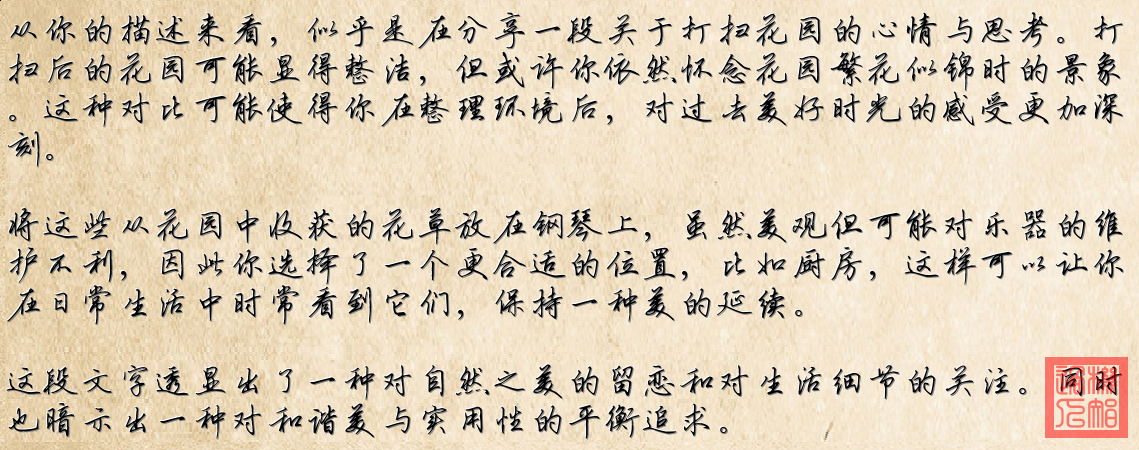 从你的描述来看，似乎是在分享一段关于打扫花园的心情与思考。打
扫后的花园可能显得整洁，但或许你依然怀念花园繁花似锦时的景象
。这种对比可能使得你在整理环境后，对过去美好时光的感受更加深
刻。
将这些从花园中收获的花草放在钢琴上，虽然美观但可能对乐器的维
护不利，因此你选择了一个更合适的位置，比如厨房，这样可以让你
在日常生活中时常看到它们，保持一种美的延续。
这段文字透显出了一种对自然之美的留恋和对生活细节的关注。同时
也暗示出一种对和谐美与实用性的平衡追求。